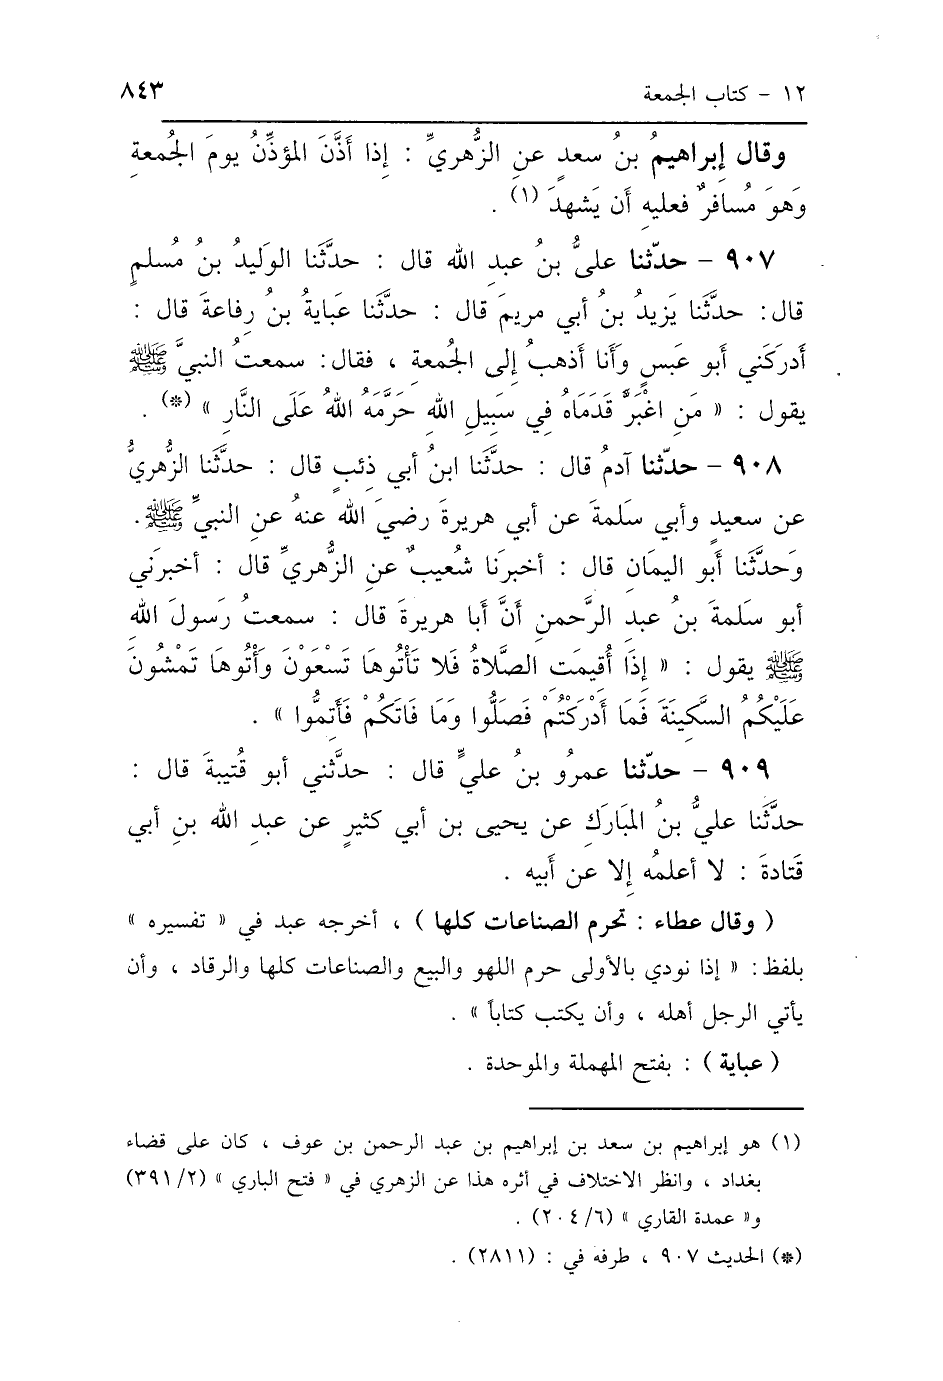 ١٢ - كتاب الجمعة ٨٤٣
وقال إبراهيمُ بنُ سعدٍ عنِ الزُّهريِّ : إذا أَذَّنَ المؤذِّنُ يومَ الجُمعةِ
وَهوَ مُسافرٌ فعليهِ أن يَشهدَ (١) .
٩٠٧ - حدّثنا عليُّ بنُ عبدِ الله قال : حدَّثَنا الوَليدُ بنُ مُسلمٍ
قال: حدَّثَنا يَزيدُ بنُ أبي مريمَ قال : حدَّثَنا عَبايةُ بنُ رِفاعةَ قال :
أَدرَكَني أبو عَبسٍ وَأَنا أذهبُ إلى الجُمعةِ ، فقال: سمعتُ النبيَّ ﷺ
يقول : « مَنِ اغْبَرَّ قَدَمَاهُ فِي سَبِيلِ اللهِ حَرَّمَهُ اللهُ عَلَى النَّارِ » (*) .
٩٠٨ - حدّثنا آدمُ قال : حدَّثَنا ابنُ أبي ذئبٍ قال : حدَّثَنا الزُّهريُّ
عن سعيدٍ وأبي سلَمةَ عن أبي هريرةَ رضيَ الله عنهُ عنِ النبيِّ ﷺ.
وَحدَّثَنا أَبو اليمَانِ قال : أخبرَنا شُعيبٌ عنِ الزُّهريِّ قال : أخبرَني
أبو سَلمةَ بنُ عبدِ الرَّحمنِ أنَّ أبا هريرةَ قال : سمعتُ رَسولَ الله
ﷺ يقول : « إِذَا أُقِيمَتِ الصَّلاةُ فَلا تَأْتُوهَا تَسْعَوْنَ وَأْتُوهَا تَمْشُونَ
عَلَيْكُمُ السَّكِينَةَ فَمَا أَدْرَكْتُمْ فَصَلُّوا وَمَا فَاتَكُمْ فَأَتِمُّوا » .
٩٠٩ - حدّثنا عمرُو بنُ عليٍّ قال : حدَّثني أبو قُتيبةَ قال :
حدَّثَنا عليُّ بنُ المُبَارَكِ عن يحيى بن أبي كثيرٍ عن عبدِ الله بنِ أبي
قَتادةَ : لا أعلمُه إلا عن أَبيه .
( وقال عطاء : تحرم الصناعات كلها ) ، أخرجه عبد في « تفسيره »
بلفظ: « إذا نودي بالأولى حرم اللهو والبيع والصناعات كلها والرقاد ، وأن
يأتي الرجل أهله ، وأن يكتب كتاباً » .
( عباية ) : بفتح المهملة والموحدة .
(١) هو إبراهيم بن سعد بن إبراهيم بن عبد الرحمن بن عوف ، كان على قضاء
بغداد ، وانظر الاختلاف في أثره هذا عن الزهري في « فتح الباري » (٣٩١/٢)
و« عمدة القاري » (٢٠٤/٦) .
(*) الحديث ٩٠٧ ، طرفه في : (٢٨١١) .